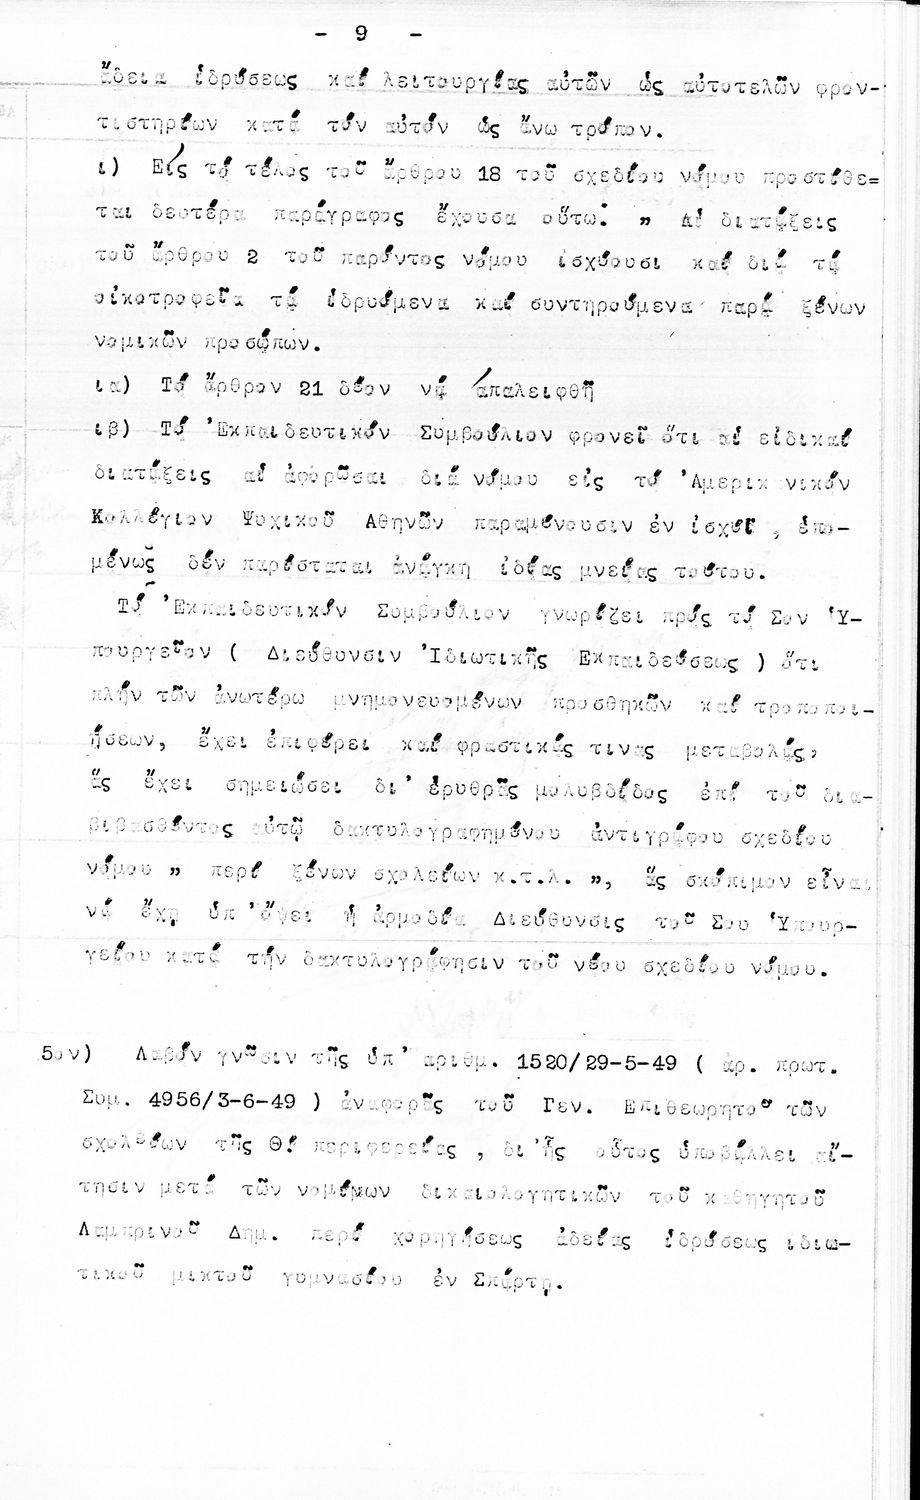 - 9 -
ἄδεια ἱδρύσεως καί λειτουργίας αὐτῶν ὡς αὐτοτελῶν φρον-
τιστηρίων κατά τόν αὐτόν ὡς ἄνω τρόπον.
ι) Εἰς τό τέλος τοῦ ἄρθρου 18 τοῦ σχεδίου νόμου προστίθε=
ται δευτέρα παράγραφος ἔχουσα οὕτω: " Αἱ διατάξεις
τοῦ ἄρθρου 2 τοῦ παρόντος νόμου ἰσχύουσι καί διά τά
οἰκοτροφεῖα τά ἱδρυόμενα καί συντηρούμενα παρά ξένων
νομικῶν προσώπων.
ια) Τό ἄρθρον 21 δέον νά ἀπαλειφθῇ
ιβ) Τό Ἐκπαιδευτικόν Συμβούλιον φρονεῖ ὅτι αἱ εἰδικαί
διατάξεις αἱ ἀφορῶσαι διά νόμου εἰς τό Ἀμερικανικόν
Κολλέγιον Ψυχικοῦ Ἀθηνῶν παραμένουσιν ἐν ἰσχύϊ , ἑπο-
μένως δέν παρίσταται ἀνάγκη ἰδίας μνείας τούτου.
Τό Ἐκπαιδευτικόν Συμβούλιον γνωρίζει πρός τό Σον Ὑ-
πουργεῖον ( Διεύθυνσιν Ἰδιωτικῆς Ἐκπαιδεύσεως ) ὅτι
πλήν τῶν ἀνωτέρω μνημονευομένων προσθηκῶν καί τροποποι-
ήσεων, ἔχει ἐπιφέρει καί φραστικάς τινας μεταβολάς,
ἅς ἔχει σημειώσει δι' ἐρυθρᾶς μολυβδίδος ἐπί τοῦ δια-
βιβασθέντος αὐτῷ δακτυλογραφημένου ἀντιγράφου σχεδίου
νόμου " περί ξένων σχολείων κ.τ.λ. ", ἅς σκόπιμον εἶναι
νά ἔχῃ ὑπ' ὄψει ἡ ἁρμοδία Διεύθυνσις τοῦ Σου Ὑπουρ-
γείου κατά τήν δακτυλογράφησιν τοῦ νέου σχεδίου νόμου.
5ον) Λαβόν γνῶσιν τῆς ὑπ' ἀριθμ. 1520/29-5-49 ( ἀρ. πρωτ.
Συμ. 4956/3-6-49 ) ἀναφορᾶς τοῦ Γεν. Ἐπιθεωρητοῦ τῶν
σχολείων τῆς Θ! περιφερείας , δι' ἧς οὗτος ὑποβάλλει αἴ-
τησιν μετά τῶν νομίμων δικαιολογητικῶν τοῦ καθηγητοῦ
Λαμπρινοῦ Δημ. περί χορηγήσεως ἀδείας ἱδρύσεως ἰδιω-
τικοῦ μικτοῦ γυμνασίου ἐν Σπάρτῃ.